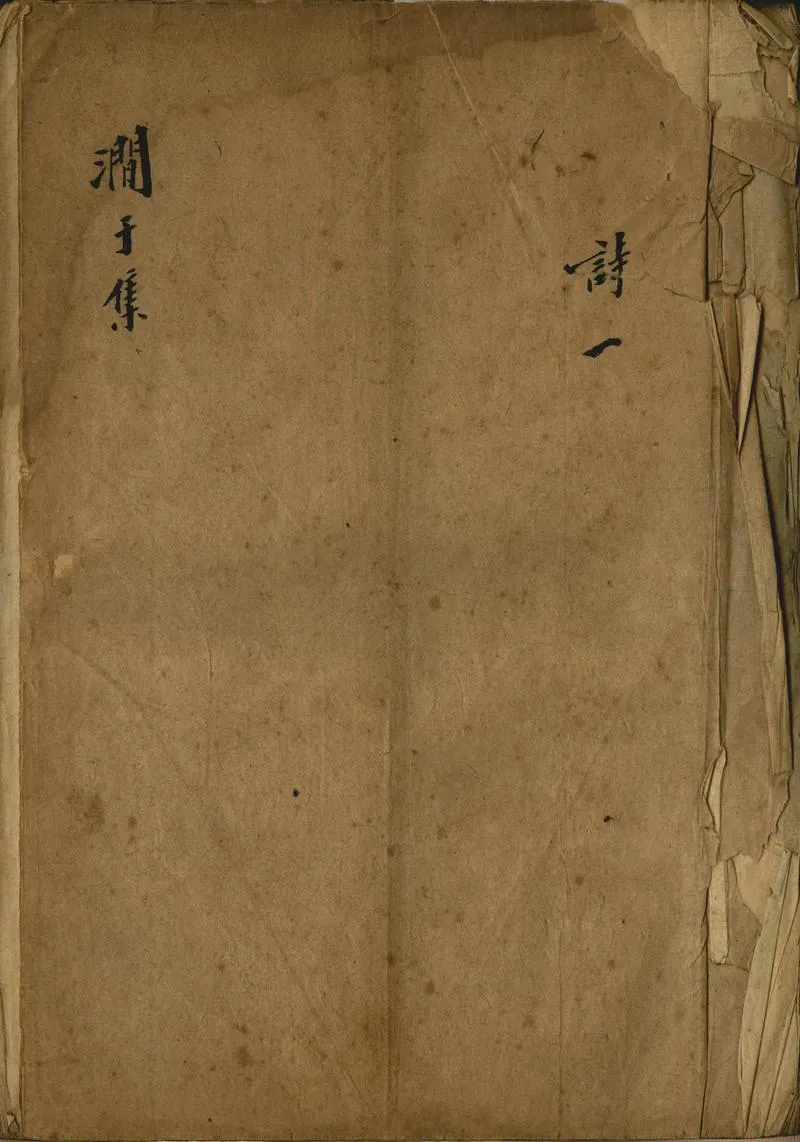 詩一
澗于集